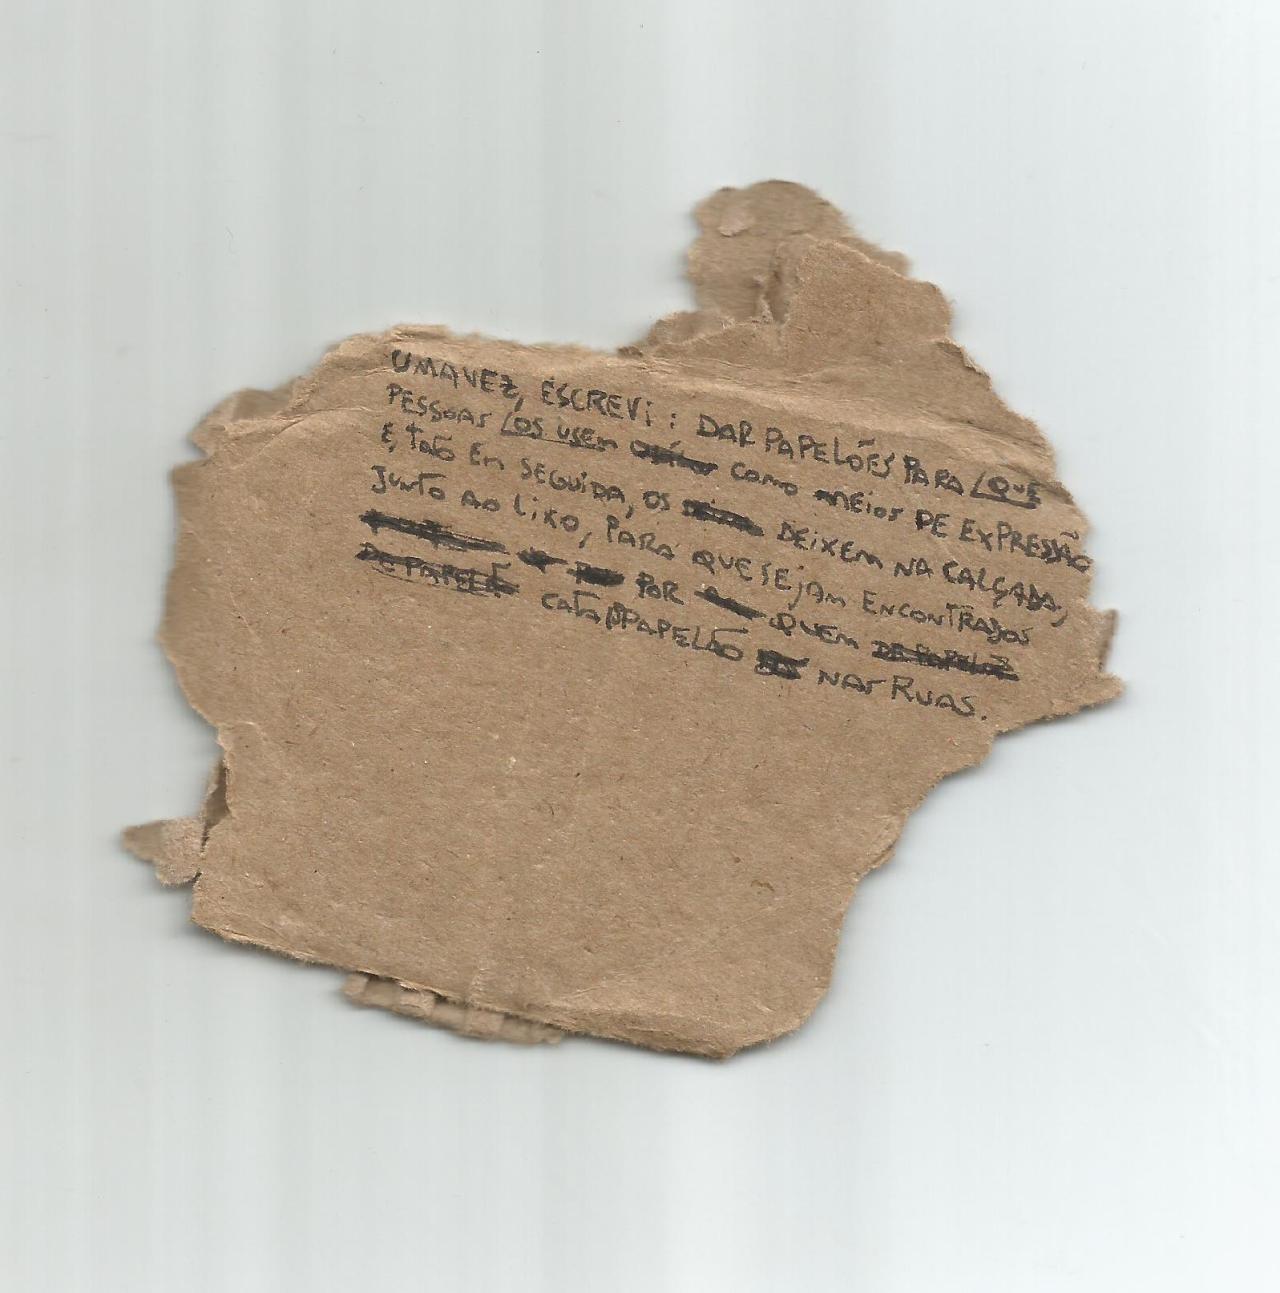 UMA VEZ, ESCREVi: DAR PAPELÕES PARA QUE
PESSOAS OS USEM COMO MEIOS DE EXPRESSÃO
E, TÃO EM SEGUIDA, OS DEIXEM NA CALÇADA,
JUNTO AO LIXO, PARA QUE SEJAM ENCONTRADOS
POR QUEM DE PAPELÃO
DE PAPELÃ CATA PAPELÃO NAS RUAS.